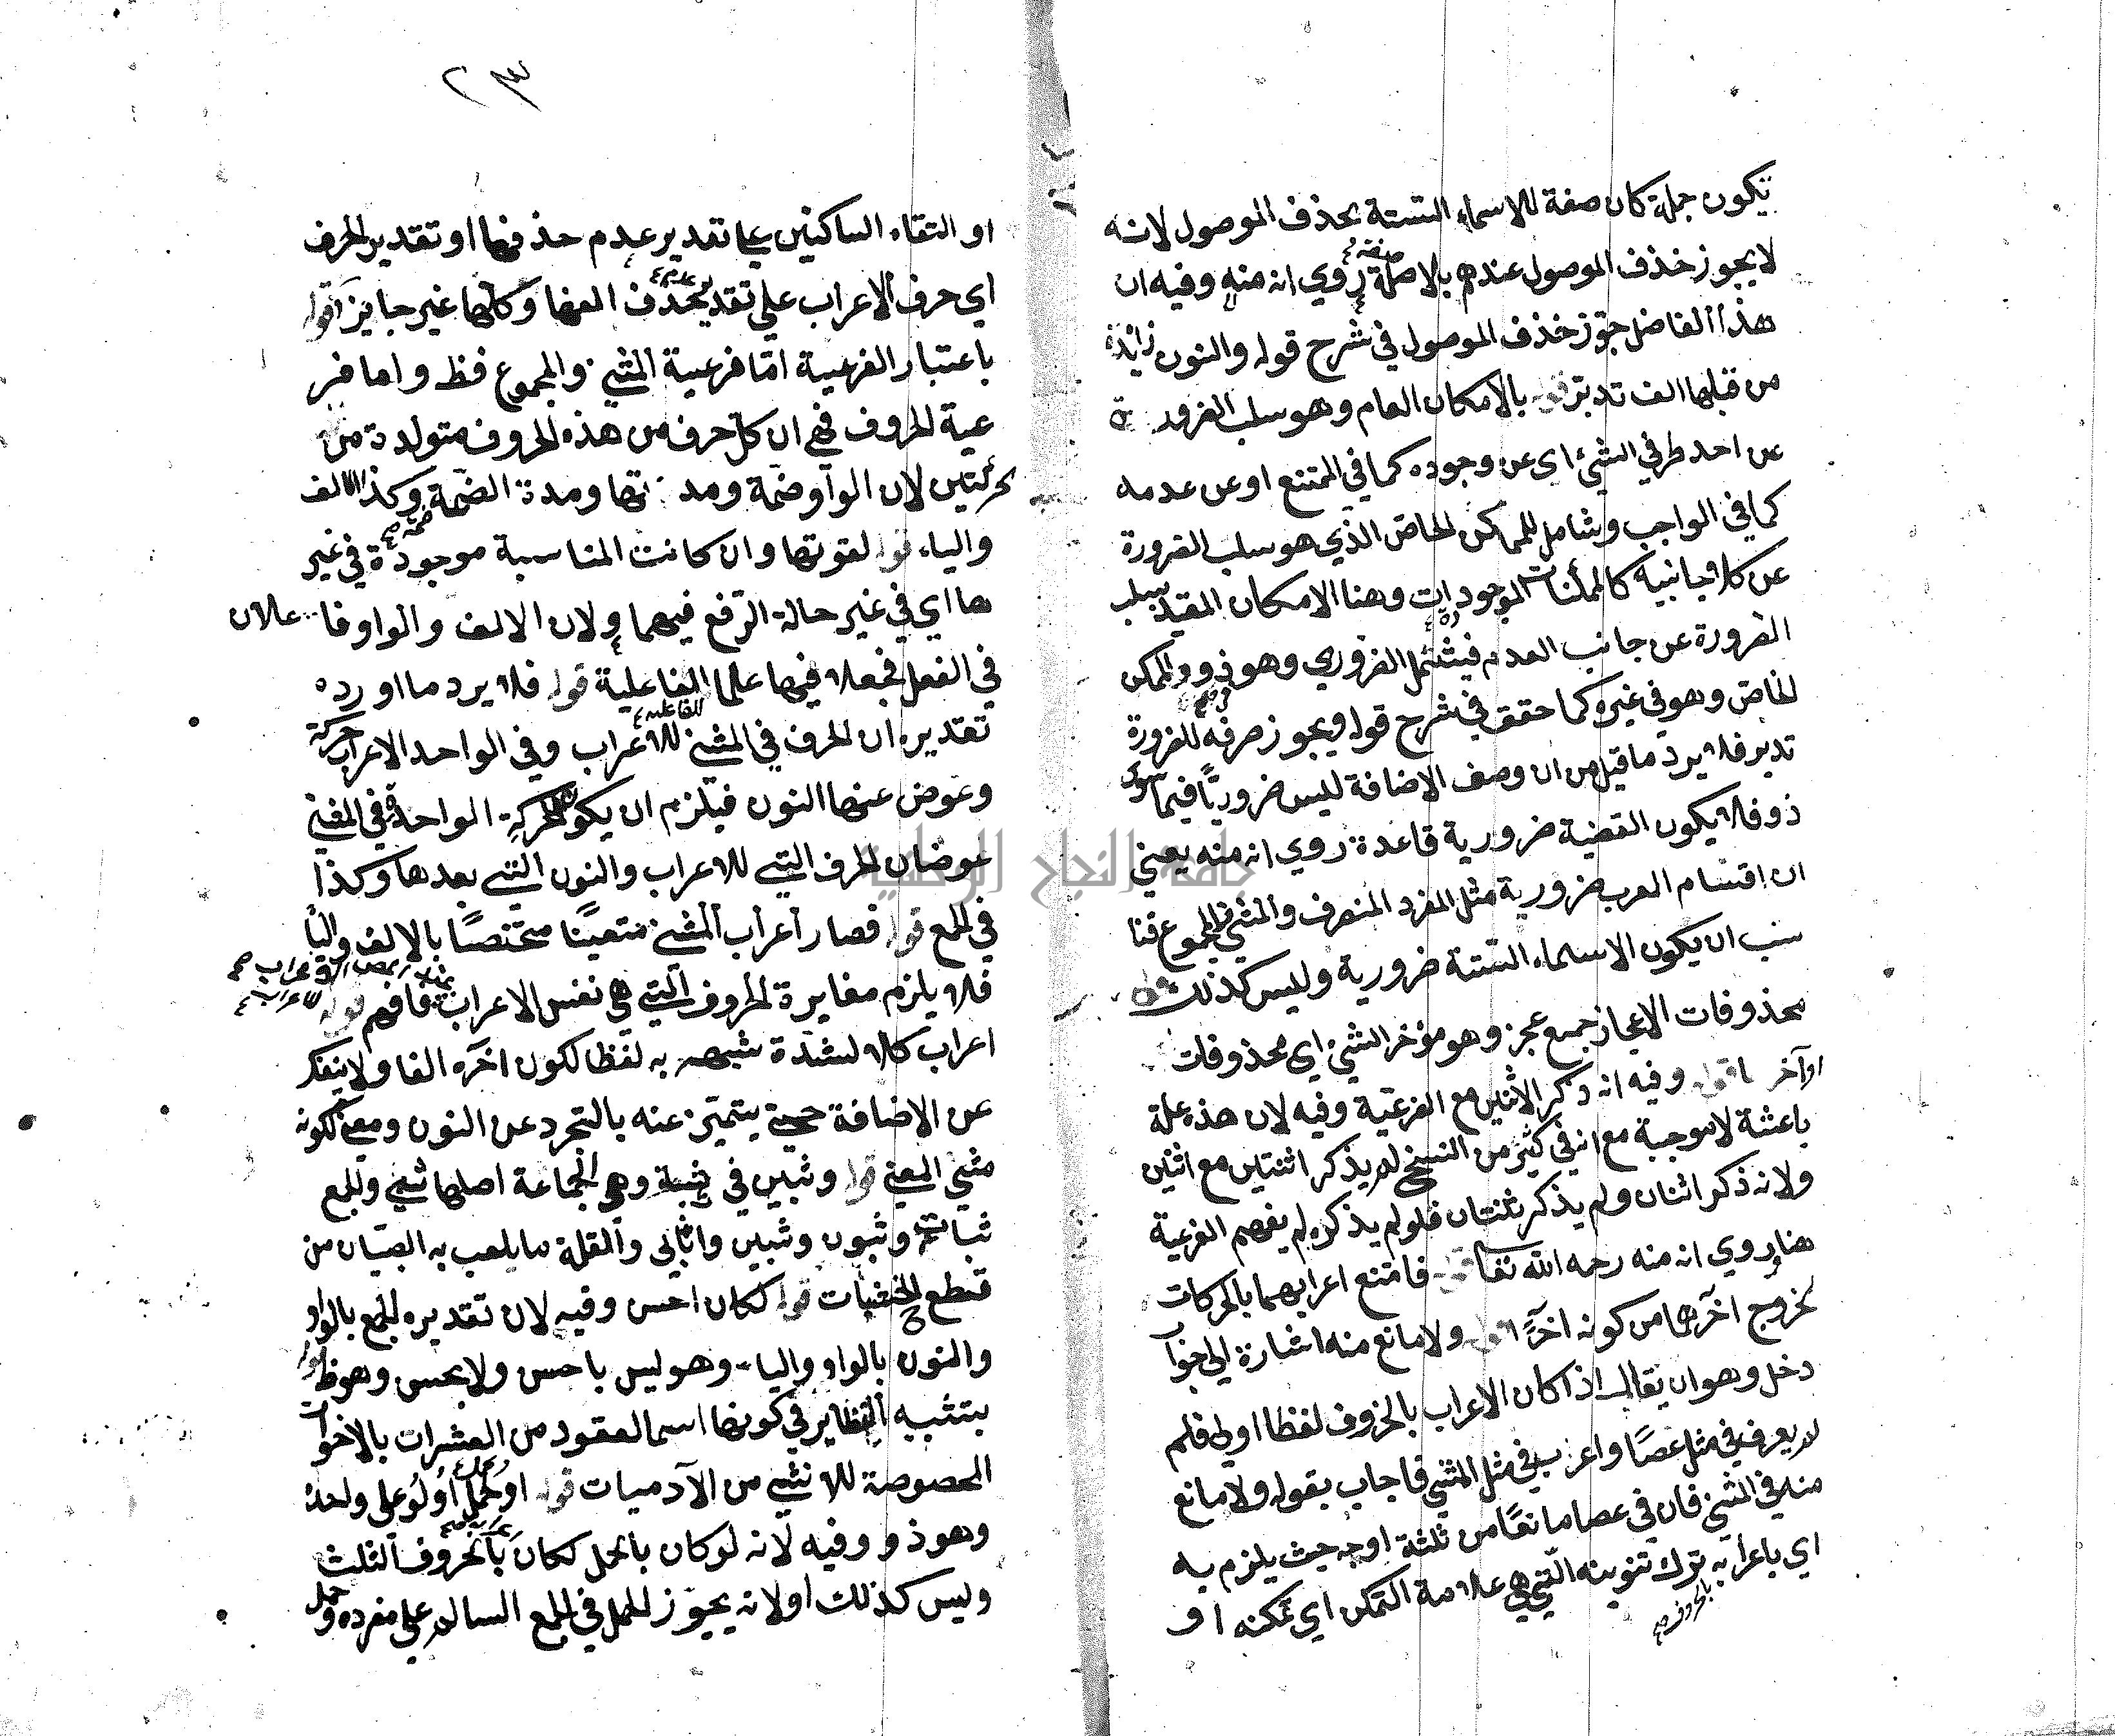 تكون جملة كان صفة للاسماء الستة بحذف الموصول لانه
لا يجوز خذف الموصول عندهم بالاصلة روي انه منه وفيه ان
هذا الفاضل جوز خذف الموصول في شرح قوله والنون زائدة
من قبلها الف تدبر قوله بالامكان العام وهو سلب الضرورة
عن احد طرفي الشيء اي عن وجوده كما في الممتنع او عن عدمه
كما في الواجب وشامل للممكن الخاص الذي هو سلب الضرورة
عن كلا جانبيه كالممكنات الموجودات وهنا الامكان المقيد بسلب
الضرورة عن جانب العدم فيشتمل الضروري وهو ذو والممكن
الخاص وهو في غيره كما حقق في شرح قوله ويجوز صرفه للضرورة
تدبر فلا يرد ما قيل من ان وصف الاضافة ليس ضروريًا فيما سوى
ذو فلا يكون القضية ضرورية قاعدة روي انه منه يعني
ان اقسام المعرب ضرورية مثل المفرد المنصرف والمثنى والمجموع فنا
سب ان يكون الاسماء الستة ضرورية وليس كذلك قوله
محذوفات الاعجاز جمع عجز وهو مؤخر الشيء اي محذوفات
اواخر ها قوله وفيه انه ذكر الاثنين مع الفرعية وفيه لان هذه علة
باعثة لا موجبة مع انه في كثير من النسخ لم يذكر اثنتين مع اثنين
ولانه ذكر اثنان ولم يذكر ثنتان فلو لم يذكره لم يفهم الفرعية
هنا روي انه منه رحمه الله تعا قوله فامتنع اعرابهما بالحركات
لخروج اخرهما من كونه اخرًا قوله ولا مانع منه اشارة الى جواب
دخل وهو ان يقال اذا كان الاعراب بالحروف لفظا اولى فلم
لم يعرف في مثل عصًا واعرب في مثل المثنى فاجاب بقوله ولا مانع
منه في المثنى فان في عصا مانعًا من ثلثة اوجه حيث يلزم به
اي باعرابه بالحروف صح ترك تنوينه التي هي علامة التمكن اي تمكنه او
٢٣
او التقاء الساكنين على تقدير عدم حذفها او تقدير الحرف
اي حرف الاعراب على تقدير عدم حذف الفها وكلها غير جايز قوله
باعتبار الفرعية اما فرعية المثنى والمجموع فظ واما فر
عية الحروف فهي ان كل حرف من هذه الحروف متولدة من
حركتين لان الواو ضمة ومد تها ومدة الضمة وكذا الالف
والياء قوله لقوتها وان كانت المناسبة موجودة في غير
ها اي في غير حالة الرفع فيهما ولان الالف والواو فا علان
في الفعل فجعلا فيها علما الفاعلية قوله فلا يرد ما اورده
تقديره ان الحرف في المثنى للاعراب وفي الواحد الاعراب حركة
وعوض عنها النون فيلزم ان يكون للحركة الواحدة في المثنى
عوضان الحرف التي للاعراب والنون التي بعدها وكذا
في الجمع قوله فصار اعراب المثنى متعينًا مختصًا بالالف والياء
فلا يلزم مغايرة الحروف التي هي نفس الاعراب فافهم قوله
اعراب كلا لشدة شبهه به لفظا لكون اخره الفا ولا ينفك
عن الاضافة حتى يتميز عنه بالتجرد عن النون ومعنى لكونه
مثنى المعنى قوله وثبين في ثبة وهي الجماعة اصلها ثبي والجمع
ثبات وثبون وثبين واثابي والقلة ما يلعب به الصبيان من
قطع الخشبات قوله لكان احسن وفيه لان تقديره الجمع بالواو
والنون بالواو والياء وهو ليس باحسن ولا بحسن وهو ظ قوله
بتشبيه النظاير في كونها اسما لعقود من العشرات بالاخوات
المخصوصة للانثى من الآدميات قوله او لحمل اولو على واحده
وهو ذو وفيه لانه لو كان بالحمل لكان بالحروف الثلث
وليس كذلك اولانه يجوز للحمل في الجمع السالم على مفرده وحمل